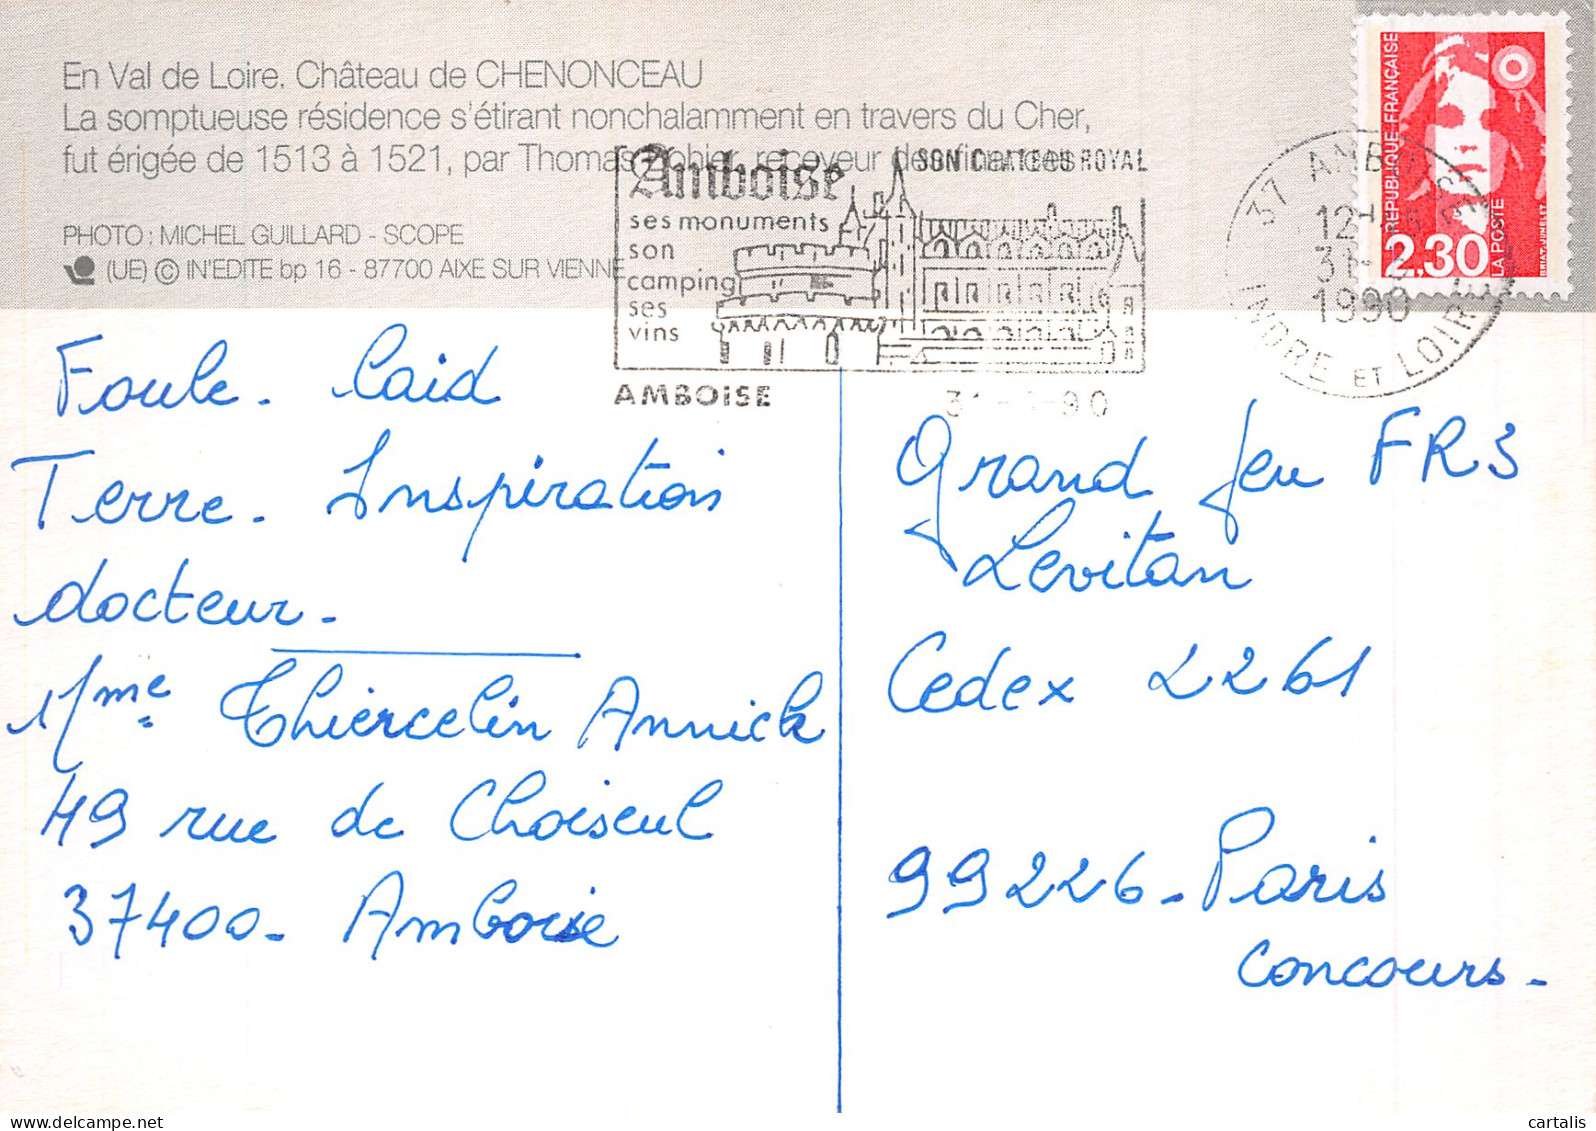 En Val de Loire. Château de CHENONCEAU
La somptueuse résidence s'étirant nonchalamment en travers du Cher,
fut érigée de 1513 à 1521, par Thomas Bohier, receveur des finances
PHOTO : MICHEL GUILLARD - SCOPE
(UE) © IN'EDITE bp 16 - 87700 AIXE SUR VIENNE
Amboise
SON CHATEAU ROYAL
ses monuments
son
camping
ses
vins
AMBOISE
90
37 AMBOISE
12H
31
1990
INDRE ET LOIRE
REPUBLIQUE FRANÇAISE
2,30
LA POSTE
BRIAT. JUMELET
Foule. laid
Terre. Inspiration
docteur.
Mme Thiercelin Annick
49 rue de Choiseul
37400. Amboise
Grand Jeu FR3
Levitan
Cedex 2261
99226. Paris
Concours.
cartalis